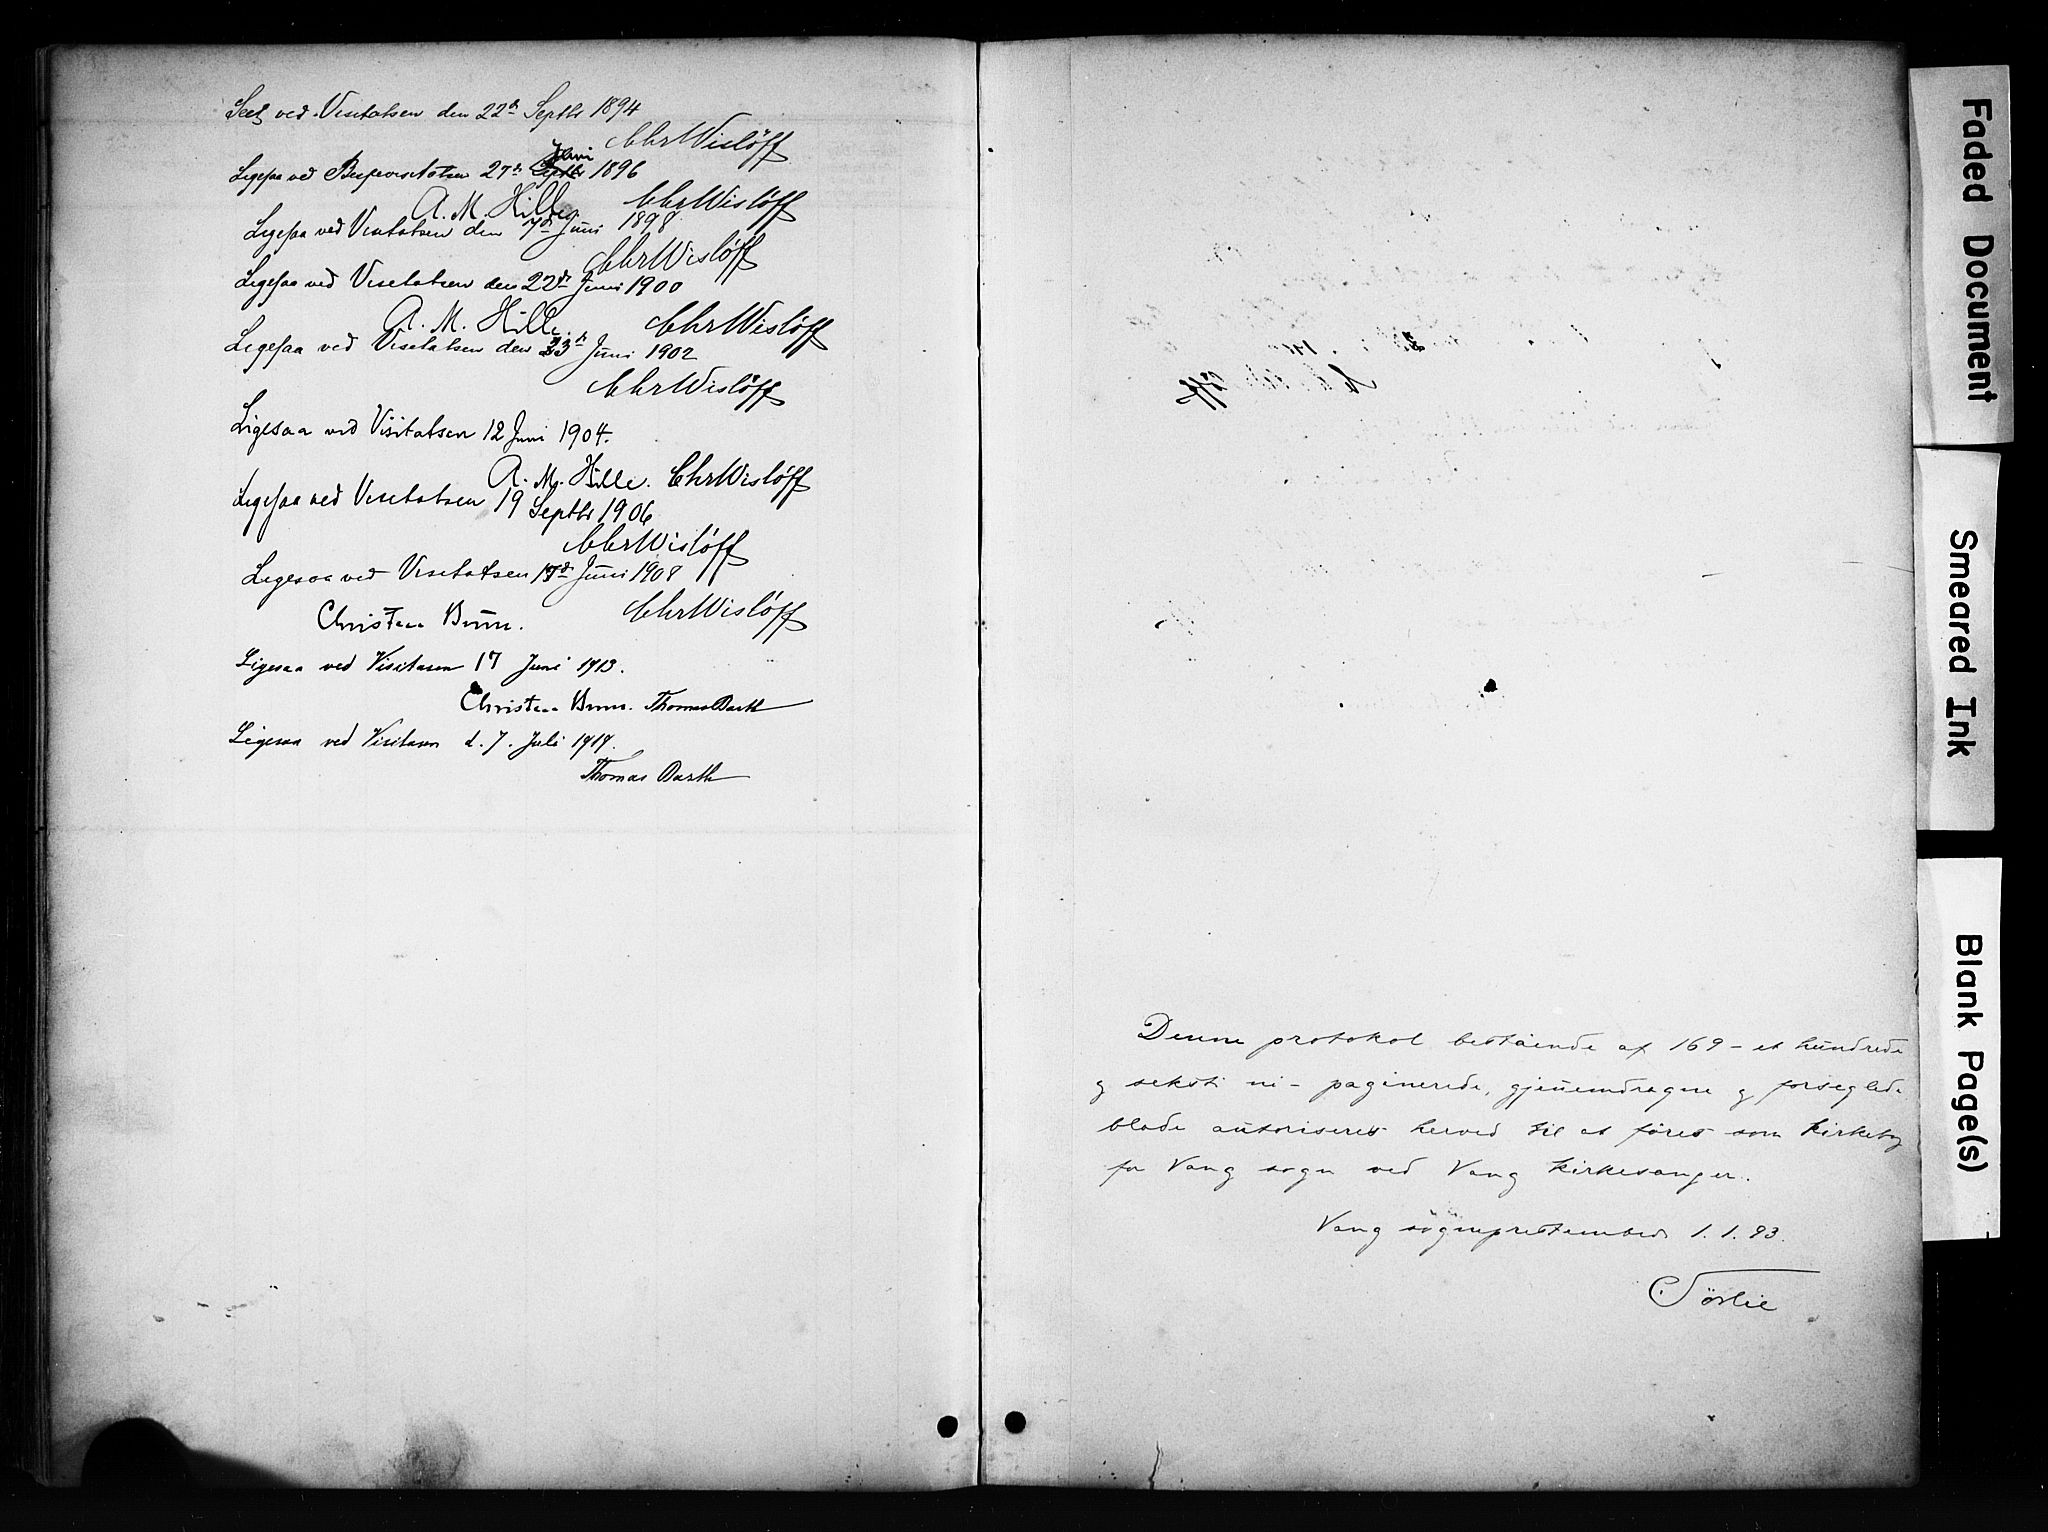 Seet ved Visitatsen den 22d Septbr 1894
Chr Wislöff
Ligesaa ved Bispevisitatsen 27d Juni 1896
A. M. Hille. Chr Wislöff
Ligesaa ved Visitatsen den 7d Juni 1898
Chr Wislöff
Ligesaa ved Visetatsen den 22d Juni 1900
A. M. Hille. Chr Wislöff
Ligesaa ved Visetatsen den 23d Juni 1902
Chr Wislöff
Ligesaa ved Visitatsen 12 Juni 1904.
A. M. Hille. Chr Wislöff
Ligesaa ved Visetatsen 19 Septbr 1906
Chr Wislöff
Ligesaa ved Visetatsen d Juni 1908
Christen Brun. Chr Wislöff
Ligesaa ved Visitasen 17 Juni 1913.
Christen Brun. Thomas Barth
Ligesaa ved Visitasen d. 7. Juli 1919.
Thomas Barth
Denne protokol bestående af 169 – et hundrede
og seksti ni – paginerede, gjennemdragne og forseglede
blade autoriseres herved til at føres som kirkebog
for Vang sogn ved Vang kirkesanger.
Vang sogneprestembed 1. 1. 93.
Sörlie
Faded Document
Smeared Ink
Blank Page(s)